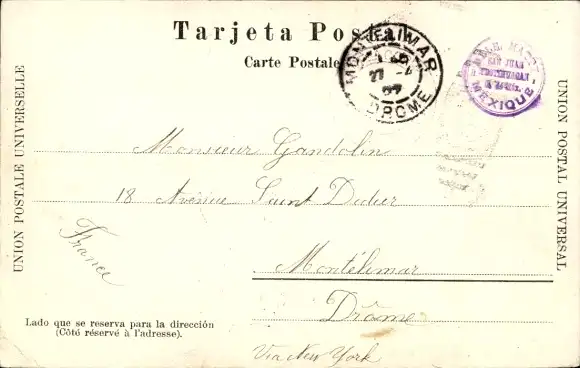 Tarjeta Postal
Carte Postale
MONTELIMAR
27 -
DROME
SAN JUAN
MEXIQUE
UNION POSTALE UNIVERSELLE
UNION POSTAL UNIVERSAL
Monsieur Gandolin
18 Avenue Saint Didier
Montélimar
Drôme
France
Via New York
Lado que se reserva para la dirección
(Côté réservé à l'adresse).